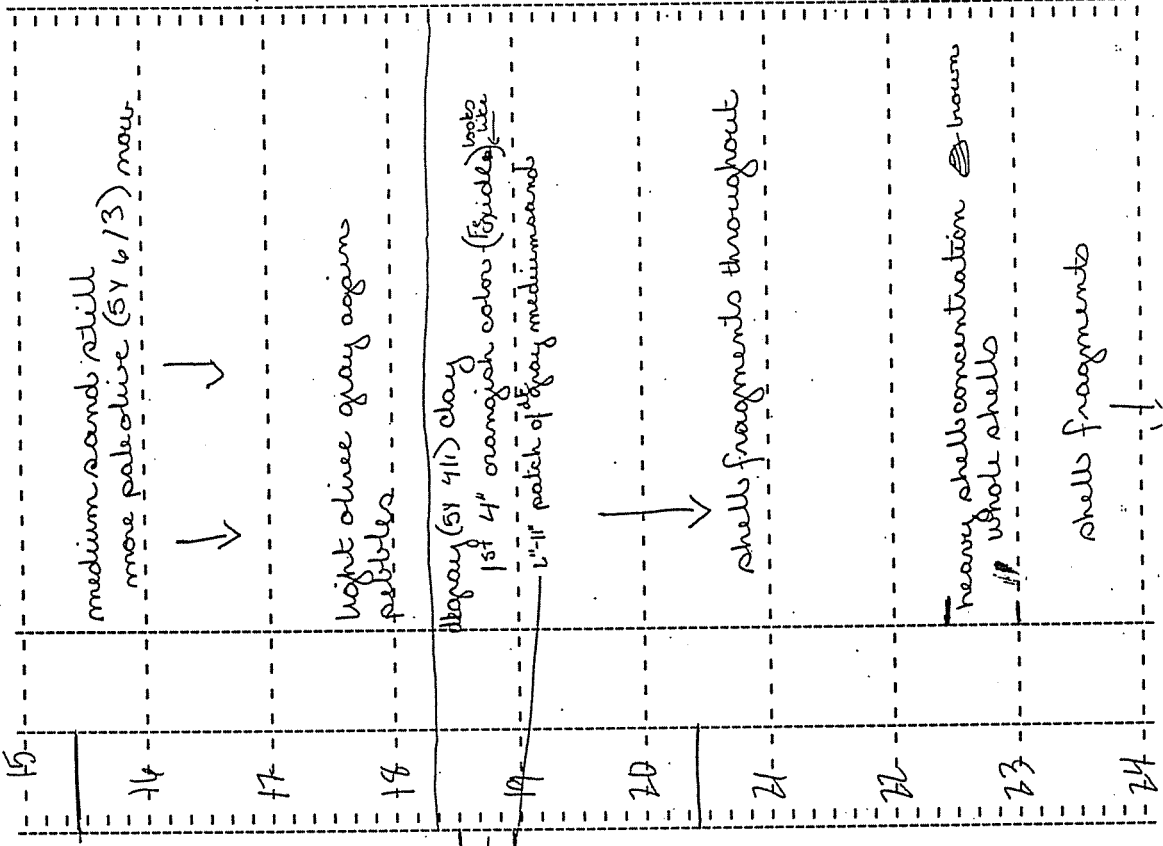 15
medium sand still
more pale olive (5Y 6/3) now
16
17
light olive gray again
pebbles
18
dk gray (5Y 4/1) clay
1st 4" orangish color (Fe oxide) looks like
patch of dk gray medium sand
19
20
shell fragments throughout
21
22
heavy shell concentration brown
whole shells
23
shell fragments
24